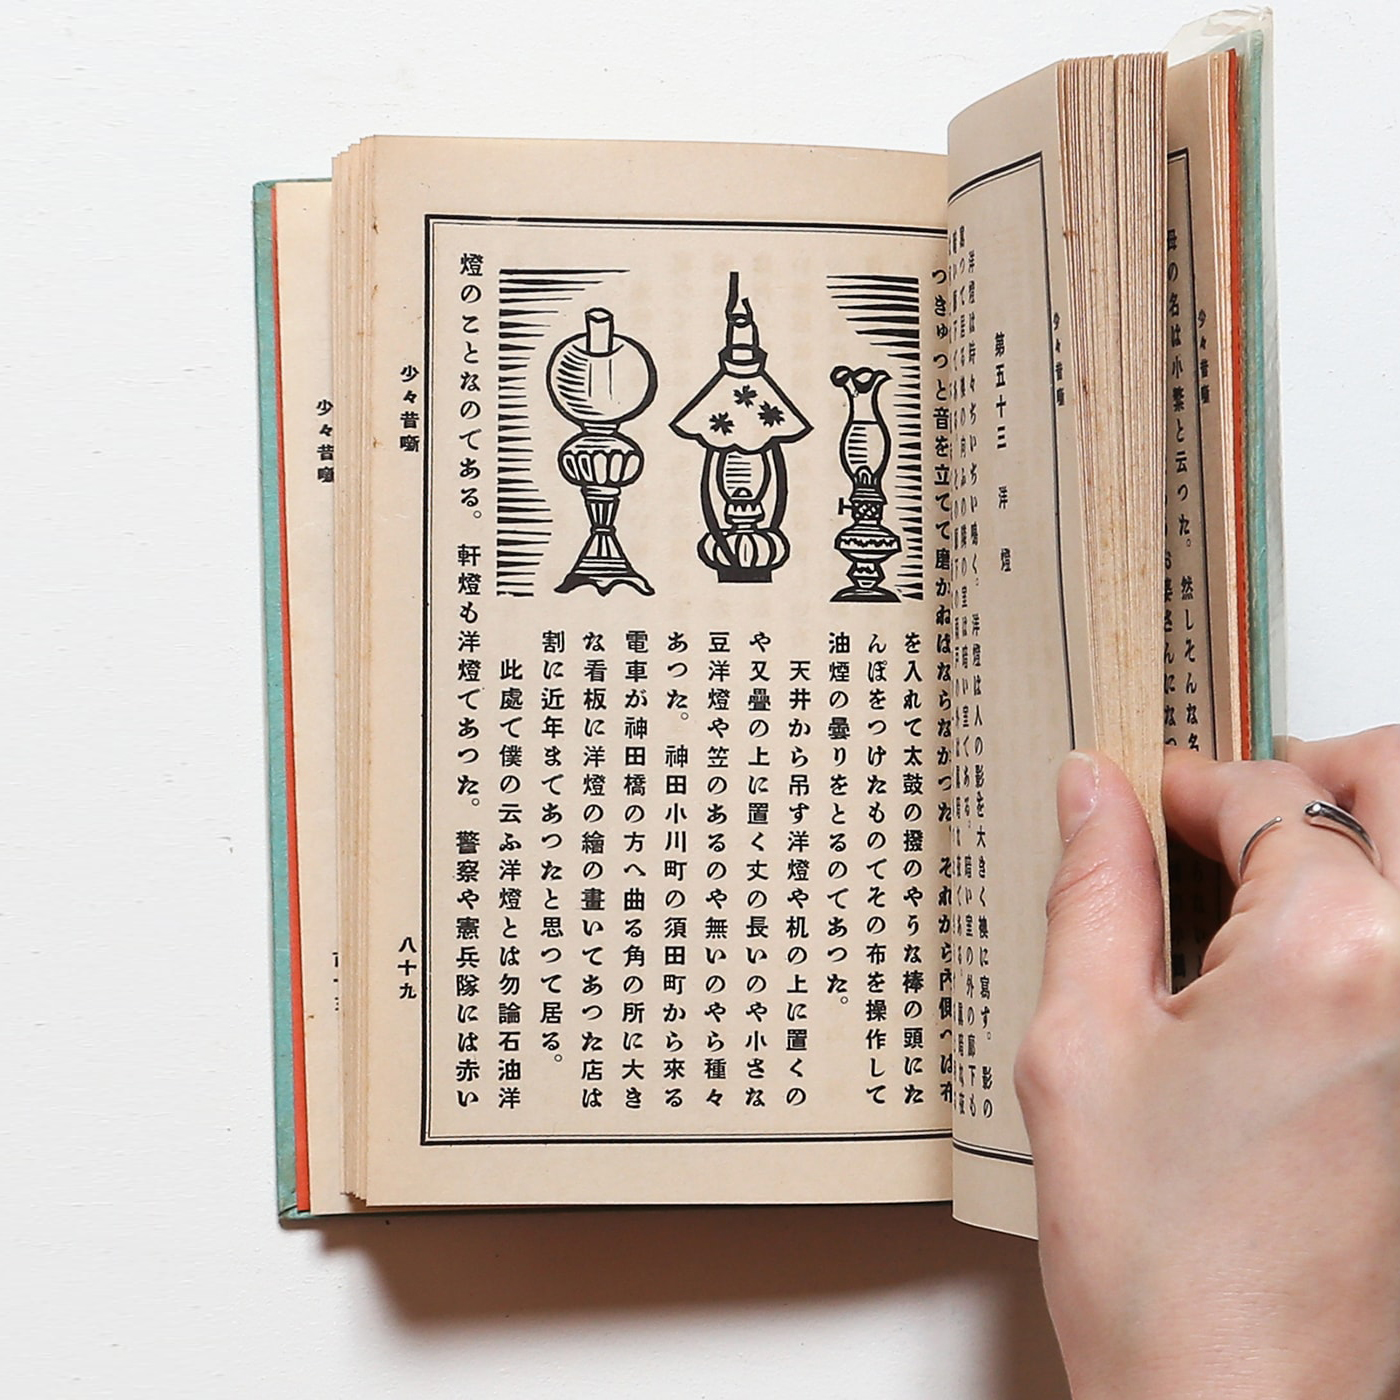 少々昔噺
母の名は小繁と云つた。然しそんな名
少々昔噺
第五十三　洋燈
洋燈は時々ぢいぢい鳴く。洋燈は人の影を大きく襖に寫す。影の
寫つて居る襖の向ふの隣の室は暗い室である。暗い室の外の廊下も
つきゆつと音を立てて磨かねばならなかつた。それから内側へは布
を入れて太鼓の撥のやうな棒の頭にた
んぽをつけたものでその布を操作して
油煙の曇りをとるのであつた。
天井から吊す洋燈や机の上に置くの
や又疊の上に置く丈の長いのや小さな
豆洋燈や笠のあるのや無いのやら種々
あつた。神田小川町の須田町から來る
電車が神田橋の方へ曲る角の所に大き
な看板に洋燈の繪の畫いてあつた店は
割に近年まであつたと思つて居る。
此處で僕の云ふ洋燈とは勿論石油洋
燈のことなのである。軒燈も洋燈であつた。警察や憲兵隊には赤い
少々昔噺
八十九
少々昔噺